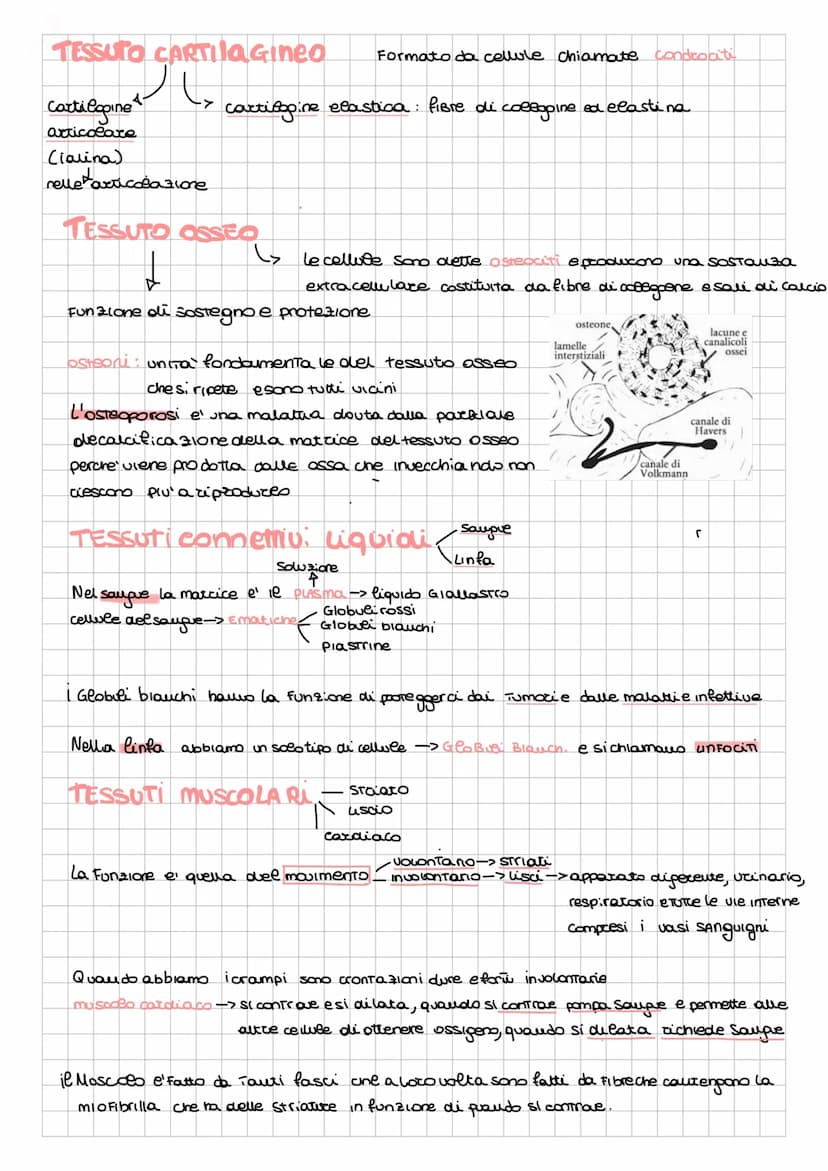 TESSUTO CARTILAGINEO Formato da cellule chiamate condrociti
Cartilagine
articolare
(ialina)
nelle articolazione
cartilagine elastica: fibre di collagine ed elastina
TESSUTO OSSEO
Le cellule sono dette osteociti e producono una sostanza
extracellulare costituita da fibre di collegene e sali di calcio
Funzione di sostegno e protezione
osteoni: unità fondamentale del tessuto osseo
che si ripete e sono tutti vicini
L'osteoporosi e' una malattia dovuta dalla parziale
decalcificazione della matrice del tessuto osseo
perche' viene prodotta dalle ossa che invecchiando non
riescono piu' a riprodurlo
osteone
lamelle
interstiziali
lacune e
canalicoli
ossei
canale di
Havers
canale di
Volkmann
TESSUTI connettivi liquidi
Sangue
Linfa
Soluzione
Nel sangue la matrice e' il plasma -> liquido Giallastro
cellule del sangue -> Ematiche
Globuli rossi
Globuli bianchi
Piastrine
i Globuli bianchi hanno la funzione di proteggerci dai Tumori e dalle malattie infettive
Nella linfa abbiamo un solo tipo di cellule -> Globuli Bianchi e si chiamano LINFOCITI
TESSUTI MUSCOLARI
striato
liscio
cardiaco
La Funzione e' quella del movimento
volontario -> striati
involontario -> Lisci -> apparato digerente, urinario,
respiratorio e tutte le vie interne
compresi i vasi sanguigni
Quando abbiamo i crampi sono contrazioni dure e forti involontarie
muscolo cardiaco -> si contrae e si dilata, quando si contrae pompa sangue e permette alle
altre cellule di ottenere ossigeno, quando si dilata richiede sangue
il Moscolo e' fatto da tanti fasci che a loro volta sono fatti da fibre che contengono la
miofibrilla che ha delle striature in funzione di quando si contrae.